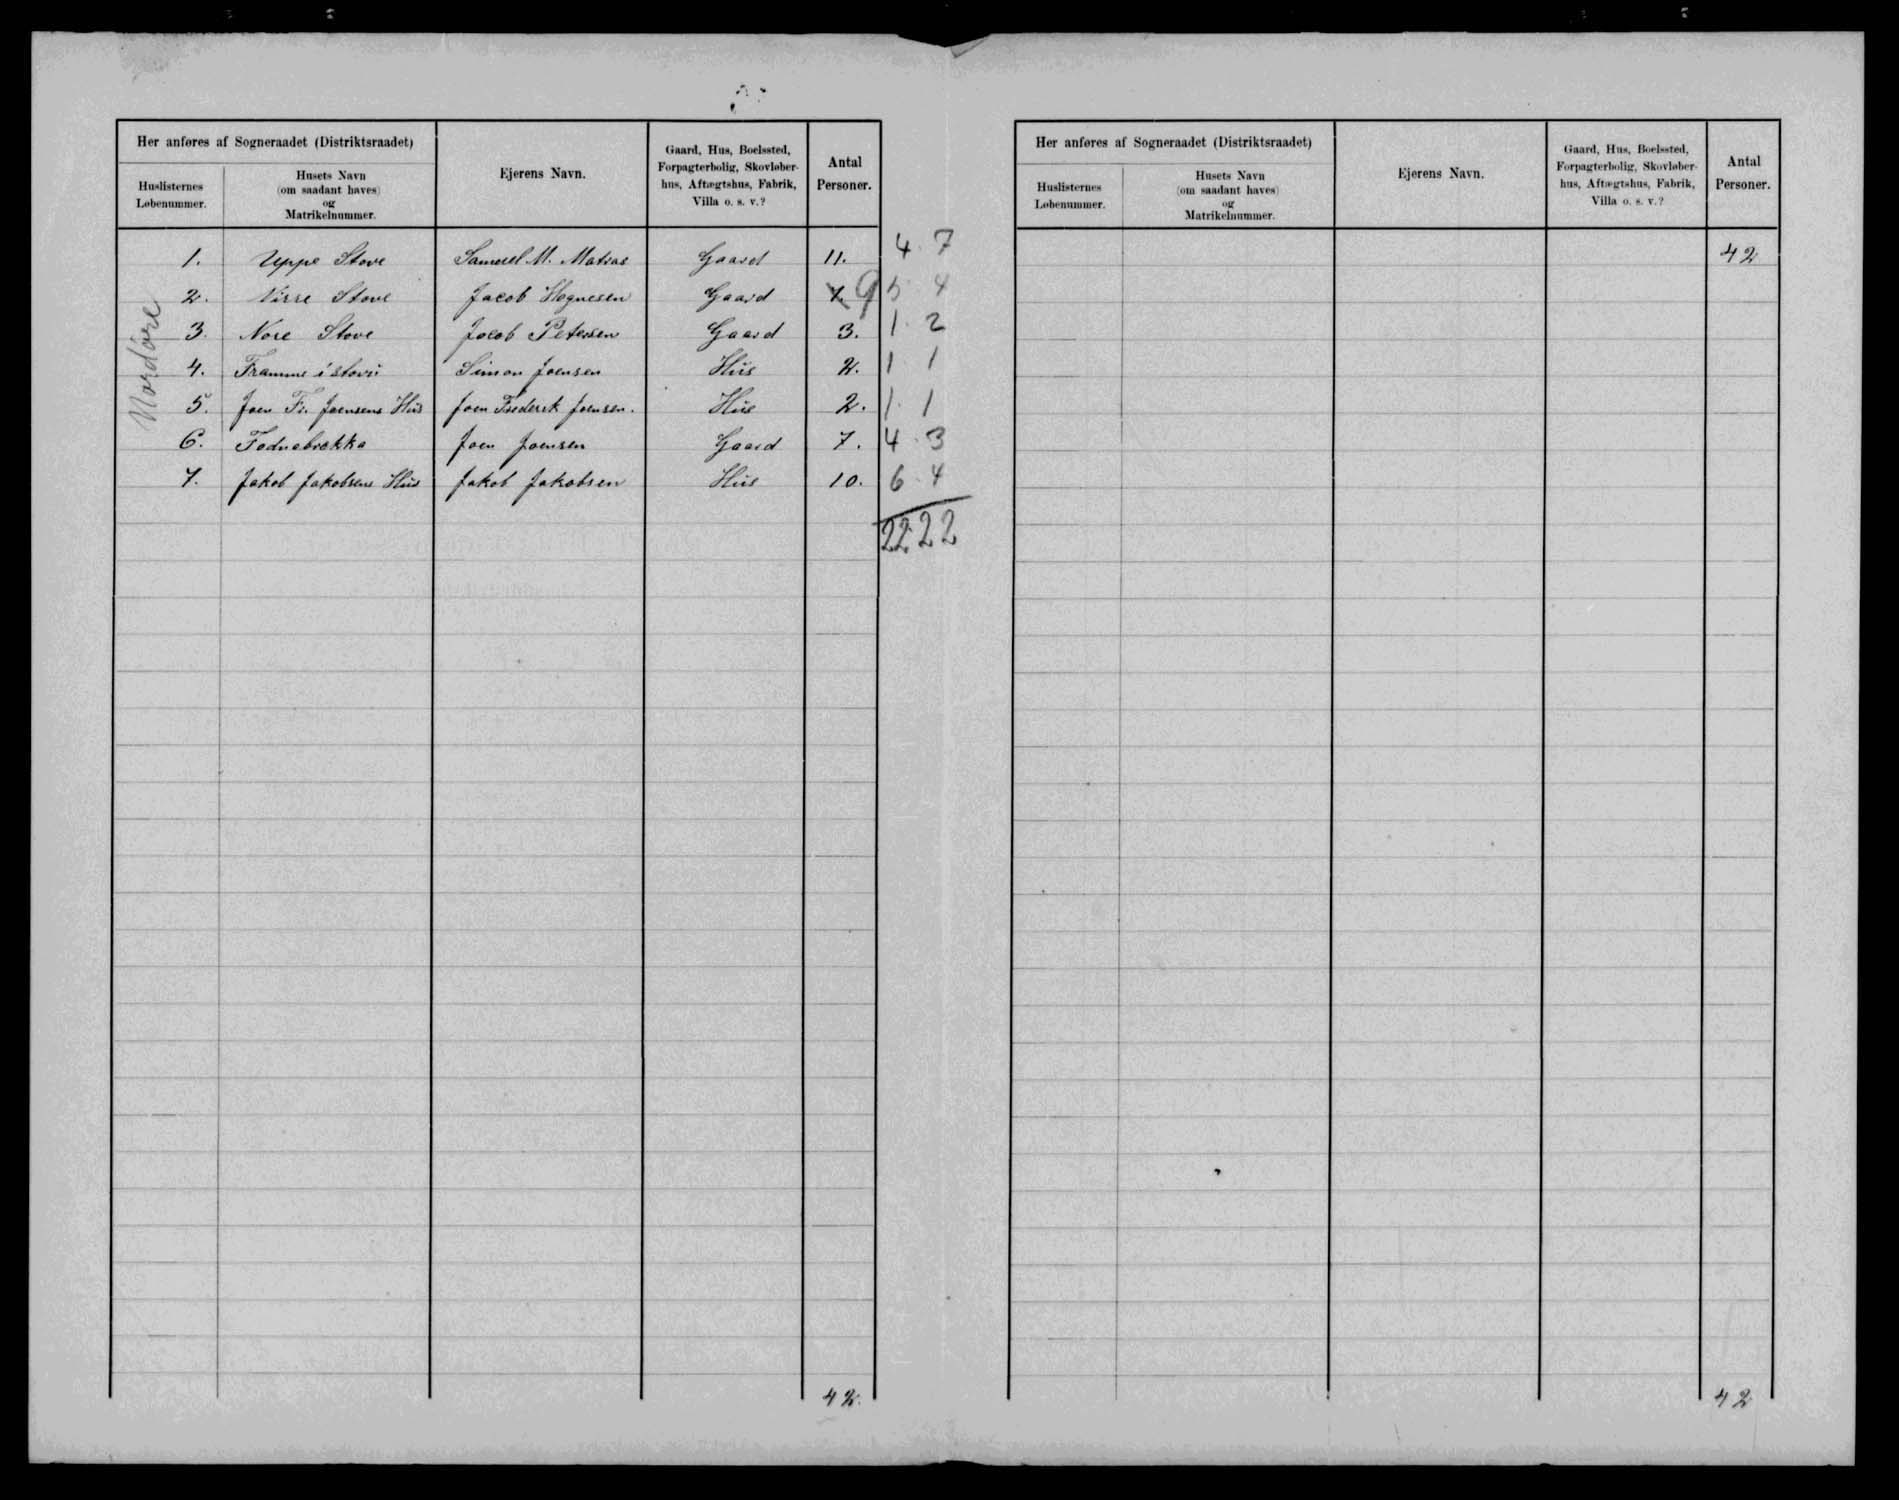 Her anføres af Sogneraadet (Distriktsraadet)
Huslisternes Løbenummer.
Husets Navn (om saadant haves) og Matrikelnummer.
Ejerens Navn.
Gaard, Hus, Boelssted, Forpagterbolig, Skovløberhus, Aftægtshus, Fabrik, Villa o. s. v.?
Antal Personer.
Nordøre
1. Uppe Stove Samuel M. Matras Gaard 11. 4. 7
2. Nirre Stove Jacob Hognesen Gaard 7. 9 5. 4
3. Nore Stove Jacob Petersen Gaard 3. 1. 2
4. Framme i stovu Simon Joensen Hus 2. 1 1
5. Joen Fr. Joensens Hus Joen Frederik Joensen. Hus 2. 1. 1
6. Joen Joensen Gaard 7. 4. 3
7. Jakob Jakobsens Hus Jakob Jakobsen Hus 10. 6. 4
22 22
42.
Her anføres af Sogneraadet (Distriktsraadet)
Huslisternes Løbenummer.
Husets Navn (om saadant haves) og Matrikelnummer.
Ejerens Navn.
Gaard, Hus, Boelssted, Forpagterbolig, Skovløberhus, Aftægtshus, Fabrik, Villa o. s. v.?
Antal Personer.
42
42